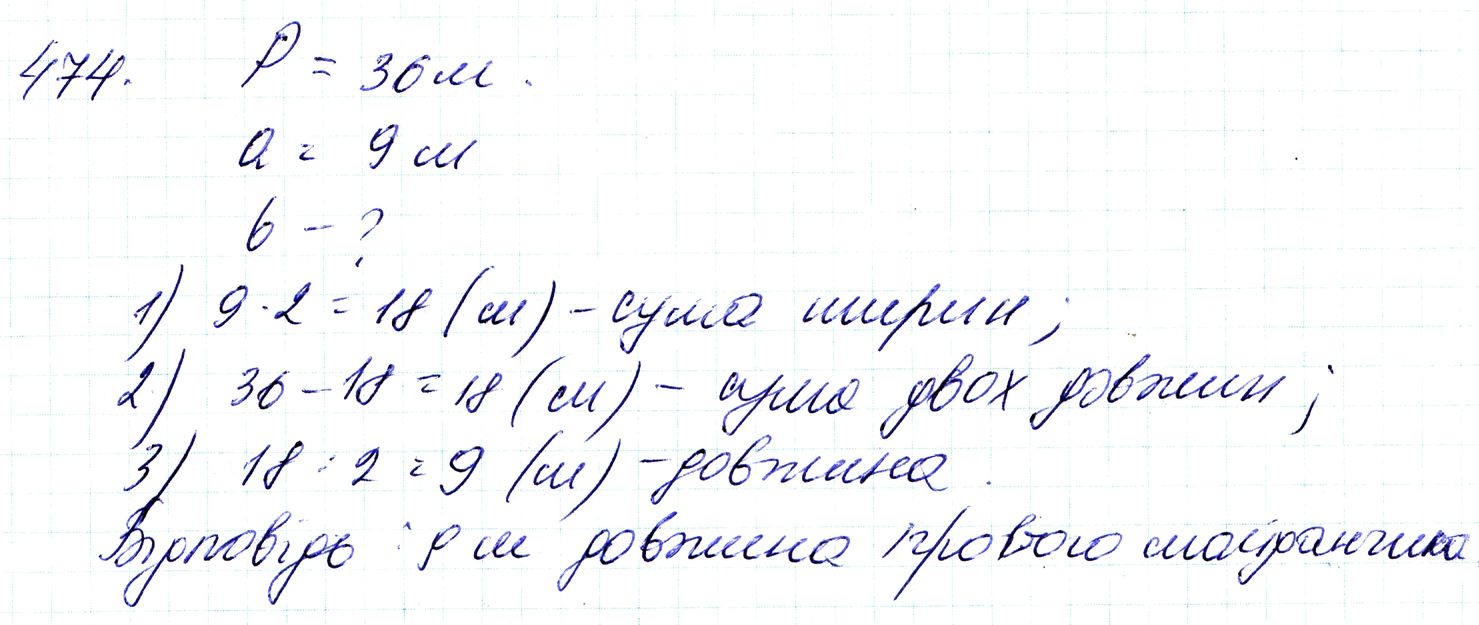 474. P = 36 м.
a = 9 м
b - ?
1) 9 · 2 = 18 (м) – сума ширин;
2) 36 – 18 = 18 (м) – сума двох довжин;
3) 18 : 2 = 9 (м) – довжина.
Відповідь: 9 м довжина ігрового майданчика